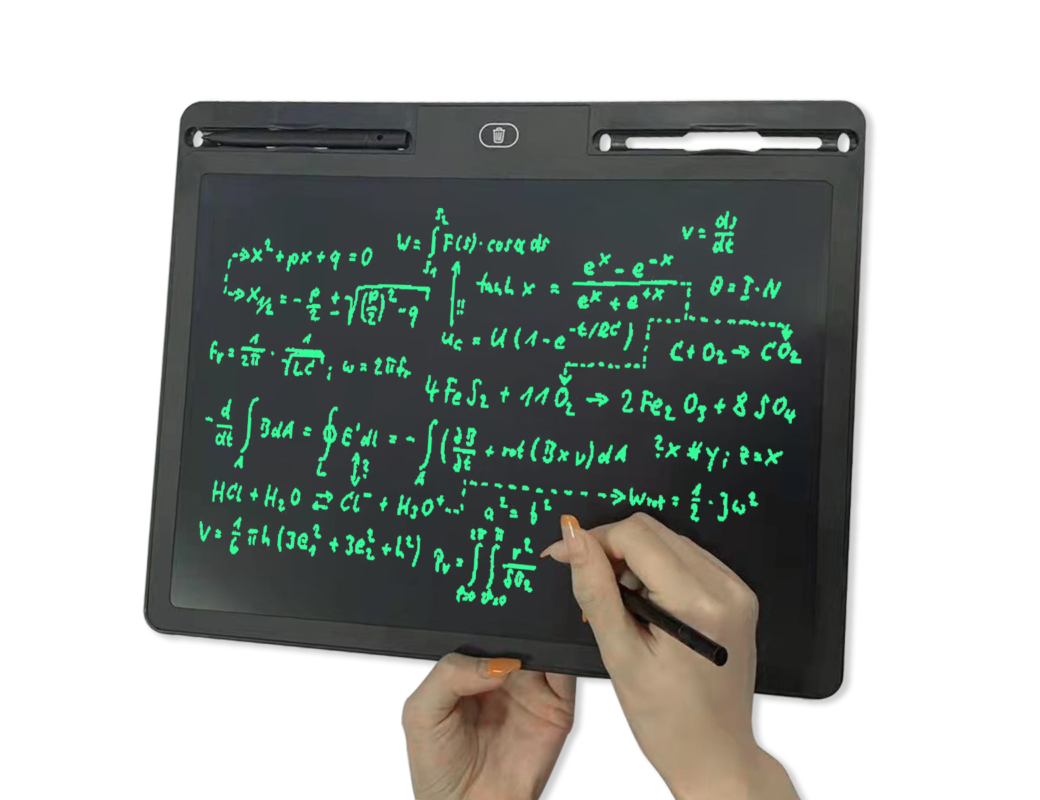 v = ds/dt
W = ∫_{s1}^{s2} F(s) · cos α ds
x² + px + q = 0
tanh x = (e^x − e^−x)/(e^x + e^+x)
θ = I · N
x_{1/2} = − p/2 ± √((p/2)² − q)
!!
u_c = U (1 − e^{−t/RC})
C + O₂ → CO₂
f_r = 1/2π · 1/√LC ; ω = 2πf_r
4 FeS₂ + 11 O₂ → 2 Fe₂O₃ + 8 SO₄
− d/dt ∫_A B dA = ∮_L E' dl = − ∫_A (∂B/∂t + rot (B × v) dA
?x # y; z = x
?
HCl + H₂O ⇄ Cl⁻ + H₃O⁺
a² = b²
W_rot = 1/2 · J ω²
V = 1/6 πh (3e₁² + 3e₂² + h²)
P_v = ∫_{=0}^{2π} ∫_{=0}^{π} r²/SO₂